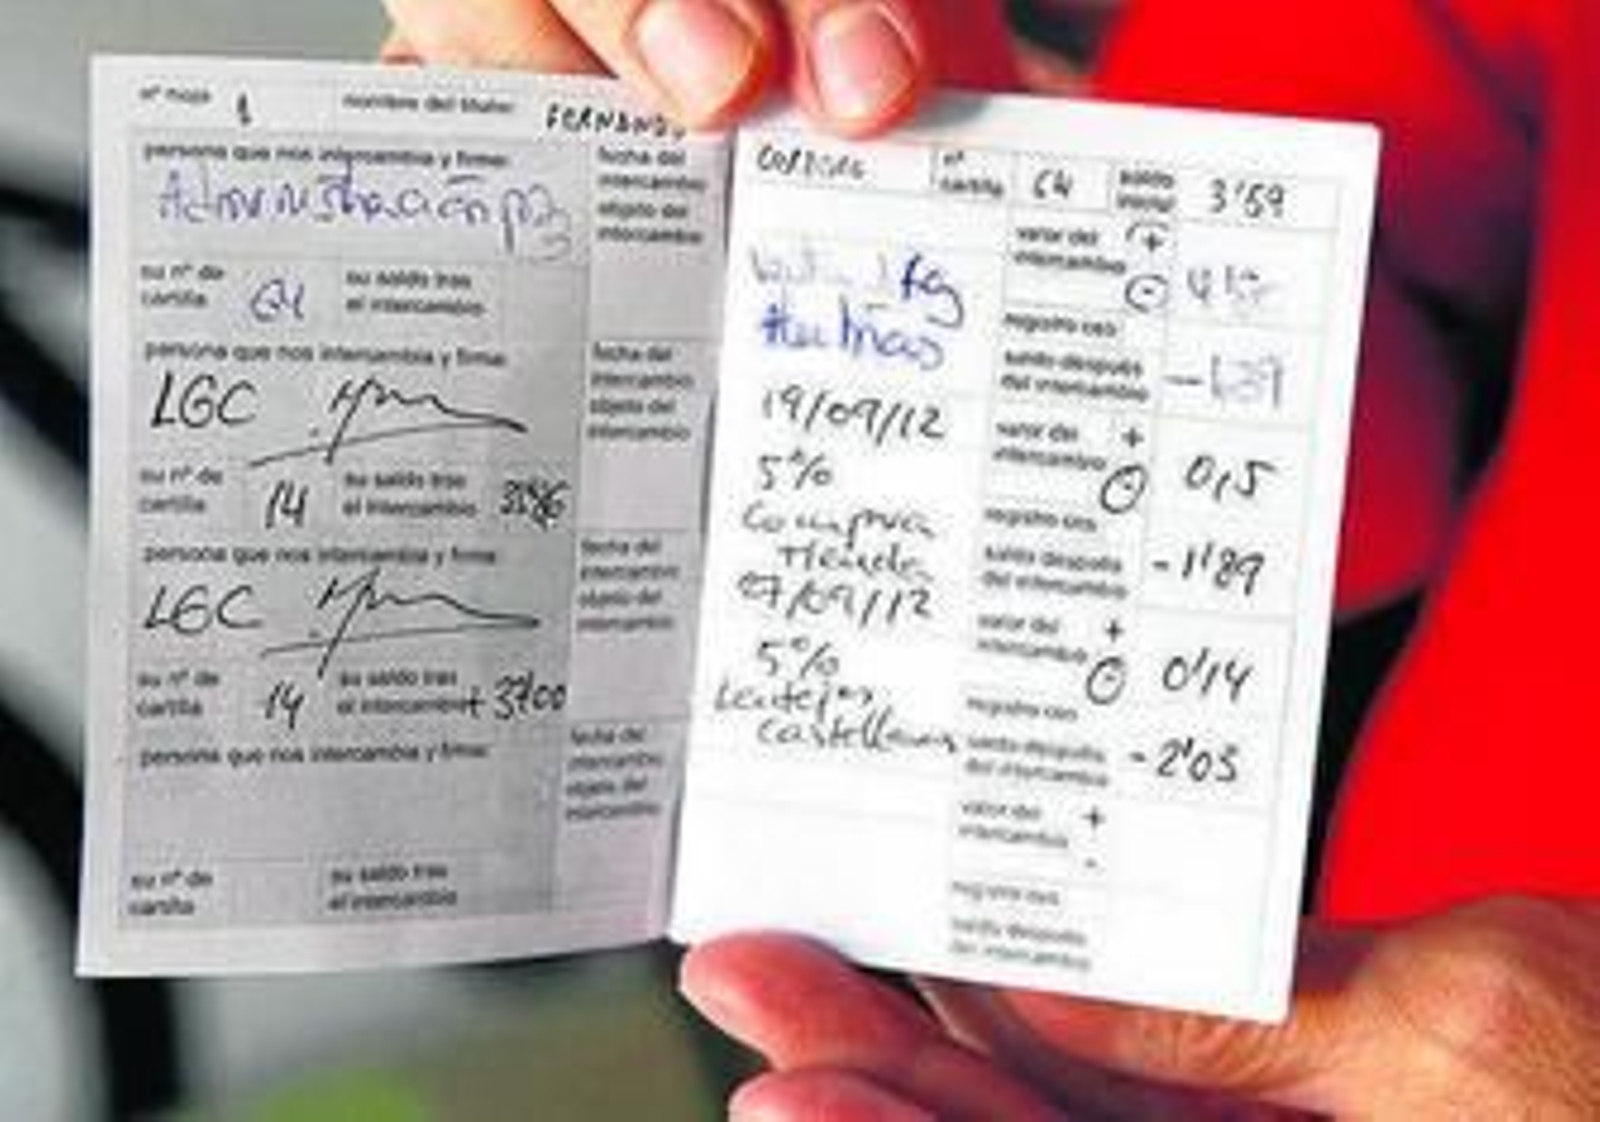 nº hoja 1 nombre del titular: FERNANDO
persona que nos intercambia y firma:
Administración
su nº de cartilla su saldo tras el intercambio
persona que nos intercambia y firma:
LGC
su nº de cartilla 14 su saldo tras el intercambio
persona que nos intercambia y firma:
LGC
su nº de cartilla 14 su saldo tras el intercambio + 37'00
persona que nos intercambia y firma:
su nº de cartilla su saldo tras el intercambio
fecha del intercambio
objeto del intercambio
fecha del intercambio
objeto del intercambio
fecha del intercambio
objeto del intercambio
fecha del intercambio
objeto del intercambio
nº cartilla 64 saldo inicial 3'59
valor del intercambio + -
registro ces:
saldo después del intercambio
19/09/12
5%
Compra
Tienda
valor del intercambio + - 0,5
registro ces:
saldo después del intercambio -1'89
27/09/12
5%
Lentejas
castellanas
valor del intercambio + - 0'14
registro ces:
saldo después del intercambio -2'03
valor del intercambio + -
registro ces:
saldo después del intercambio